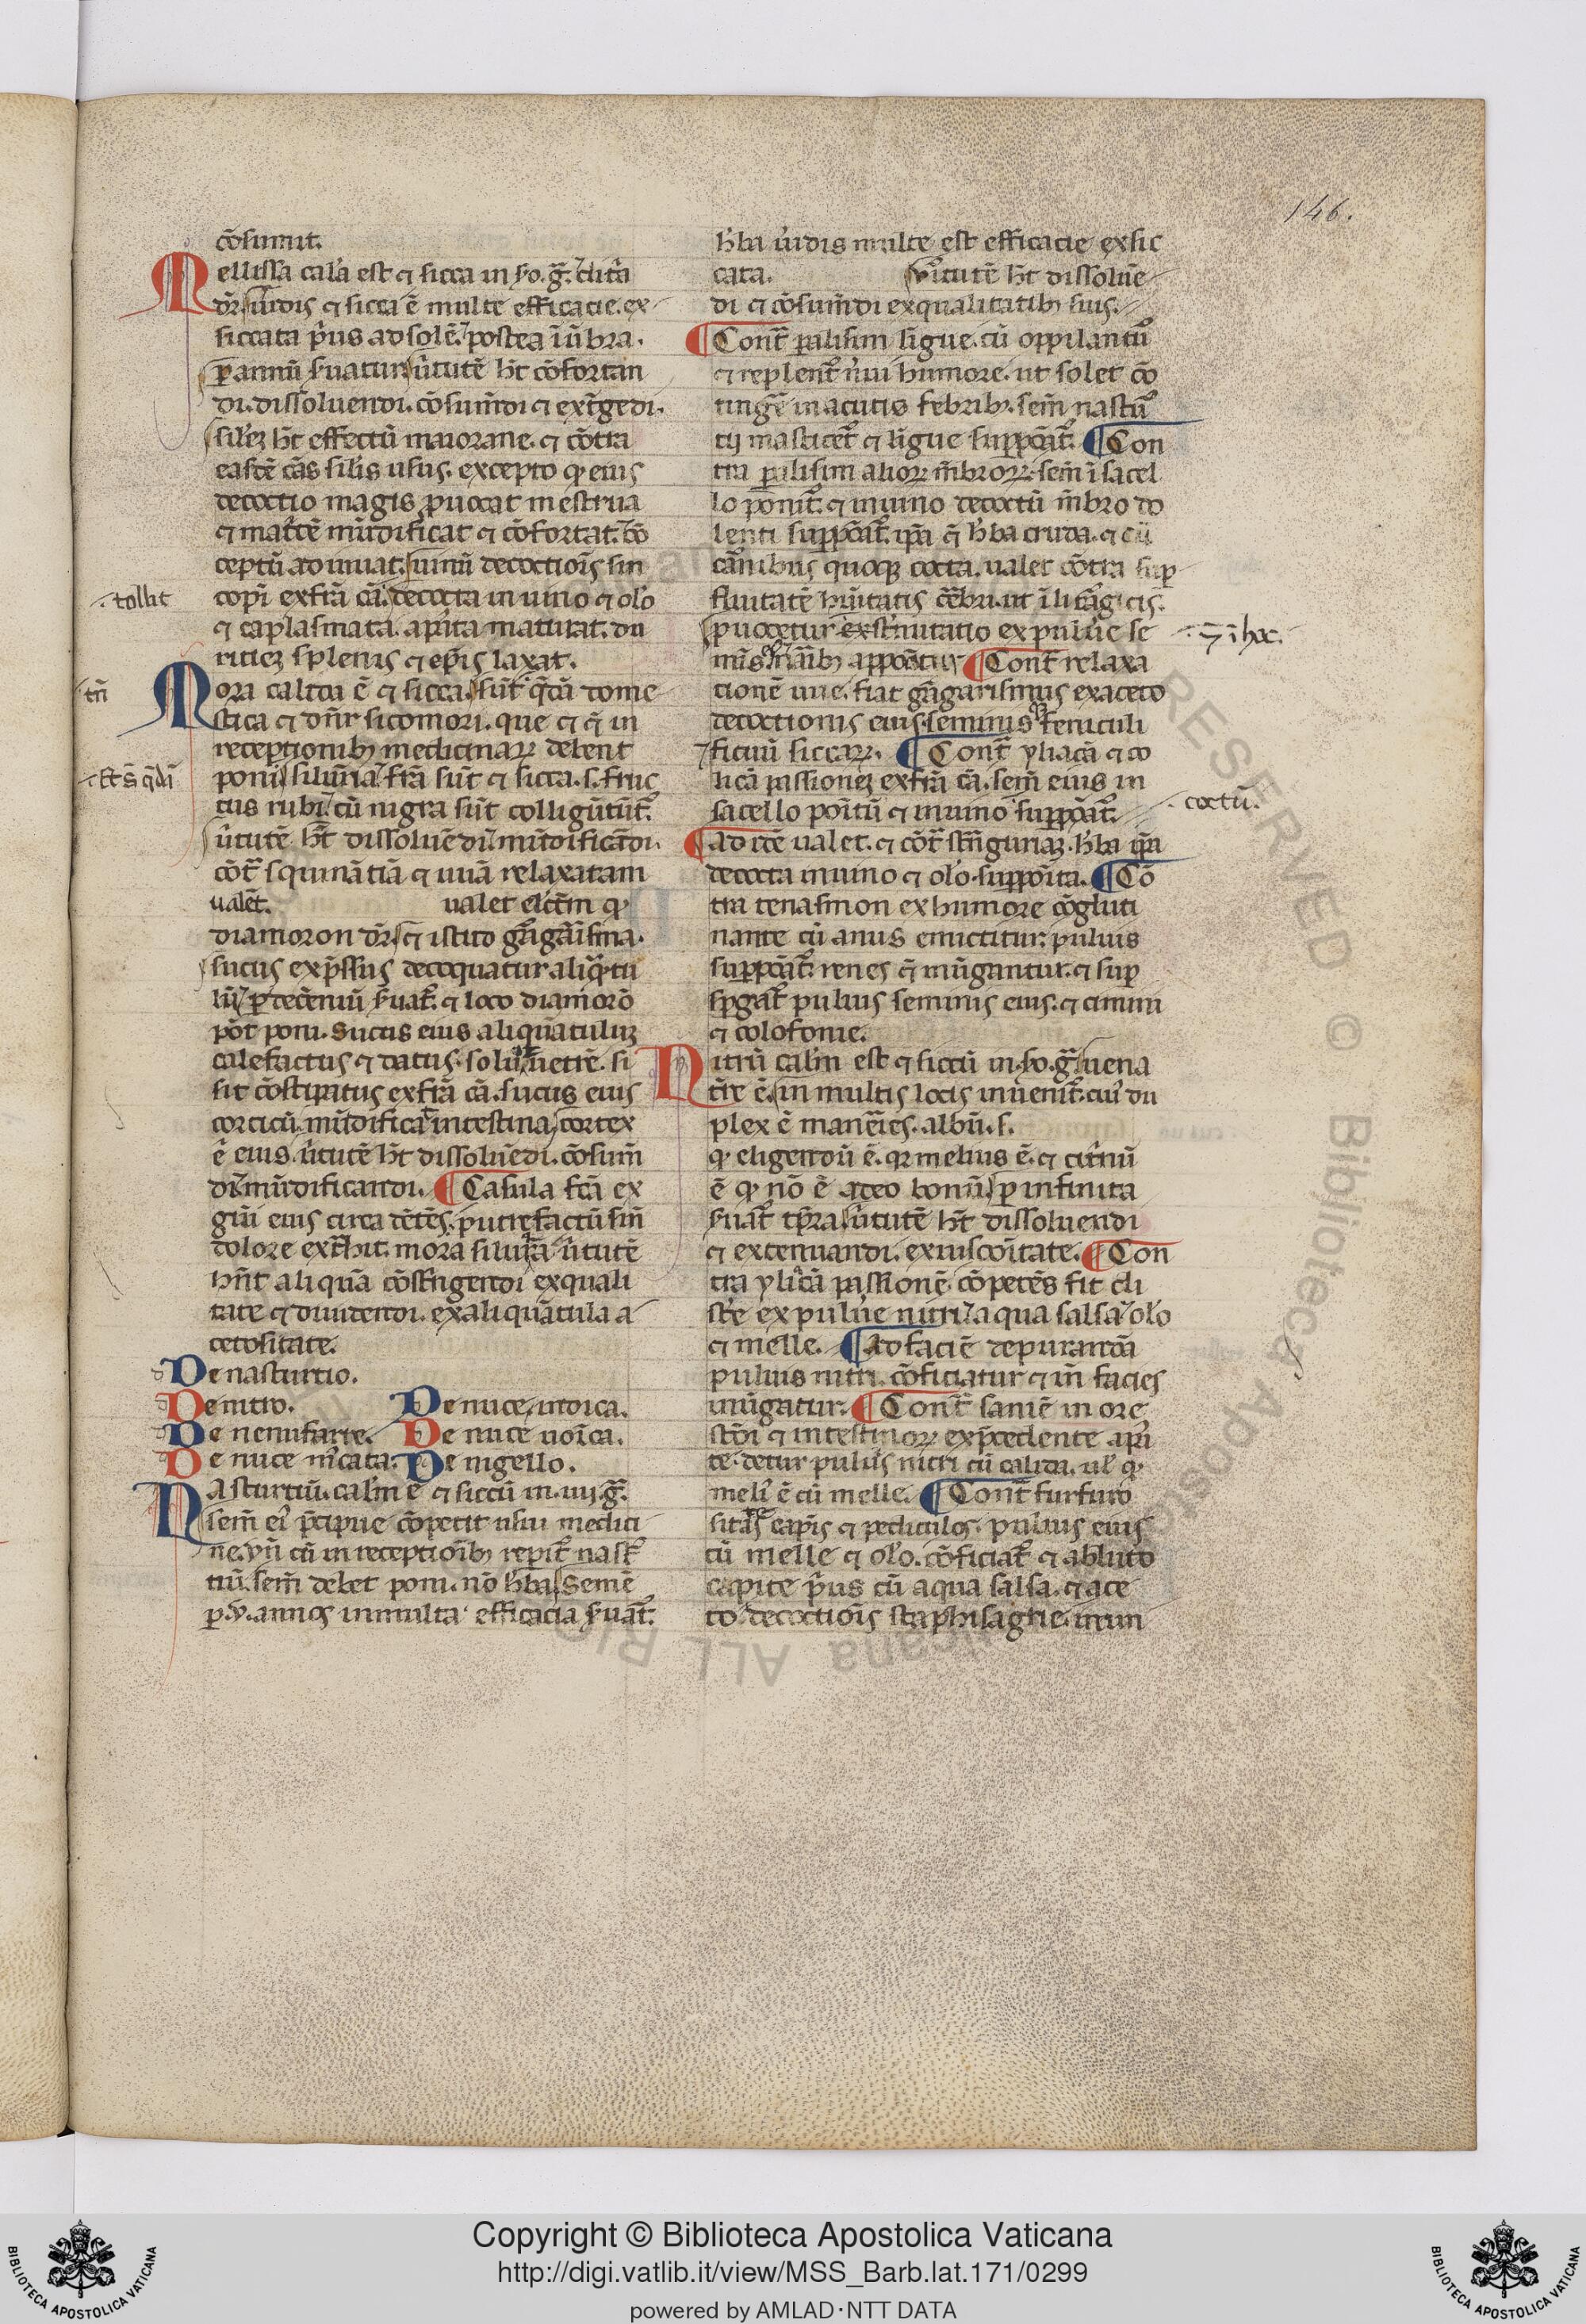 146.
cōsumit.
Mellissa cal'a est ⁊ sicca in s̄o. g̃. citr̃a
dr̄. uirdis ⁊ sicca ē multe efficacie. ex
siccata p̄us ad solē. postea ī ūbra.
ꝑ annū s̃uatur. ūtutē ht̄ cōfortan
di. dissoluendi. cōsum̄di ⁊ ext̄gēdi.
sil'ez ht̄ effectū maiorane. ⁊ cōtra
easdē cās sil'is usus. excepto ꝙ eius
decoctio magis ꝓuocat mestrua
⁊ mat̄cē mūdificat ⁊ cōfortat. cō
ceptū adiuuat. uinū decoctiōis sin
.tollit
copī ex fr̄a cā. decocta in uino ⁊ ol'o
⁊ caplasmata. apīta maturat. du
riciez splenis ⁊ epīs laxat.
tn̄
Mora calida ē ⁊ sicca. sūt q̄dā dome
stica ⁊ dn̄r sicomori. que ⁊ q̄ in
receptionibꝫ medicinaꝝ debent
poni. siluīa. fr̄a sūt ⁊ sicca. s. fruc
tus rubī. cū nigra sūt colligūtur̄.
ūtutē ht̄ dissoluēdi. mūdificādi.
cōt̄ squināciā ⁊ uuā relaxatam
ualēt. ualet el'ctm̄ ꝙ
diamoron dr̄. ⁊ istud gargarisma.
sucus exp̄ssus decoquatur aliq̄tu
lū. ꝑ decēniū s̃uat̄. ⁊ loco diamorō
pōt poni. Sucus eius aliquātuluz
calefactus ⁊ datus. soluit uētrē. si
sit cōstipatus ex fr̄a cā. sucus eius
corticū mūdificat intestina. cortex
ē eius. ūtutē ht̄ dissoluēdi. cōsum̄
di. mūdificandi. ¶ Casula fc̄a ex
dolore ext̄hit. mora siluīa ūtutē
hn̄t aliquā cōst̄ngendi ex quali
tate ⁊ diuidendi. ex aliquātula a
cetositate.
De nasturcio.
De nitro. De nuce indica.
De nenufarre. De nuce uoīca.
De nuce m̄cata. De nigello.
Nasturciū. cal'm ē ⁊ siccū in iiij. g̃.
sem̄ eī p̄cipue cōpetit usui medici
ne. vn̄ cū in receptiōibꝫ repīt̄ nast̄
tiū. sem̄ debet poni. nō h̄ba. Semē
ꝑ .v. annos in multa efficacia s̃uat̄.
h̄ba ūidis multe est efficacie exsic
cata. v̄tutē ht̄ dissoluē
di ⁊ cōsum̄di ex qualitatibꝫ suis.
¶ Cont̄ palisim līgue. cū oppilantur̄
⁊ replent̄ n̄ui humore. ut solet cō
tingē in acutis febribꝫ. sem̄ nastur̄
tij masticet̄ ⁊ līgue suppōat̄. ¶ Con
tra palisim alioꝝ m̄broꝝ. sem̄ ī sacel
lo ponit̄. ⁊ in uino decoctū m̄bro do
lenti suppōat̄. ip̄a q̄ h̄ba cruda. ⁊ cū
carnibus quoqꝫ cocta. ualet cōtra sup̄
fluitatē hūitatis cēbri. ut ī litargicis.
ꝓuocetur st̄nutatio ex puluē se
.⁊ ī hoc.
minis narībꝫ appōatur. ¶ Cont̄ relaxa
tionē uue. fiat gargarismus ex aceto
decoctionis eius. seminis feniculi
⁊ ficuū siccaꝝ. ¶ Cont̄ yliacā ⁊ co
licā passionez ex fr̄a cā. sem̄ eius in
coctū.
sacello poītū ⁊ in uino suppōat̄.
¶ Ad idē ualet. ⁊ cōt̄ st̄nguriaz. h̄ba ip̄a
decocta in uino ⁊ ol'o. suppōita. ¶ Cō
tra tenasmon ex humore cōgluti
nante cū anus emictitur. puluis
suppōat̄. renes q̄ inūgantur. ⁊ sup̄
sp̄gat̄ puluis seminis eius. ⁊ cimini
⁊ colofonie.
Nitrū cal'm est ⁊ siccū in s̄o. g̃. uena
tēre ē. in multis locis inuenit̄. cui' du
plex ē maneries. albū. s.
ꝙ eligendū ē. qꝛ melius ē. ⁊ citīnū
ē ꝙ nō ē adeo bonū. ꝑ infinita
s̃uat̄ tp̄ra. ūtutē ht̄ dissoluendi
⁊ extenuandi. ex uiscoītate. ¶ Con
tra yliacā passionē. cōpetēs fit cli
stēre ex puluē nitri. aqua salsa. ol'o
⁊ melle. ¶ Ad faciē depurandā
puluis nitri cōficiatur ⁊ in̄ facies
inūgatur. ¶ Cont̄ saniē in ore
te. detur puluis nitri cū calida. ul' ꝙ
meli' ē cū melle. ¶ Cont̄ furfuro
sitates capīs ⁊ pediculos. puluis eius
cū melle ⁊ ol'o. cōficiat̄ ⁊ abluto
capite p̄us cū aqua salsa. ⁊ ace
to decoctiōis staphisagrie. inun
Copyright © Biblioteca Apostolica Vaticana
http://digi.vatlib.it/view/MSS_Barb.lat.171/0299
powered by AMLAD·NTT DATA